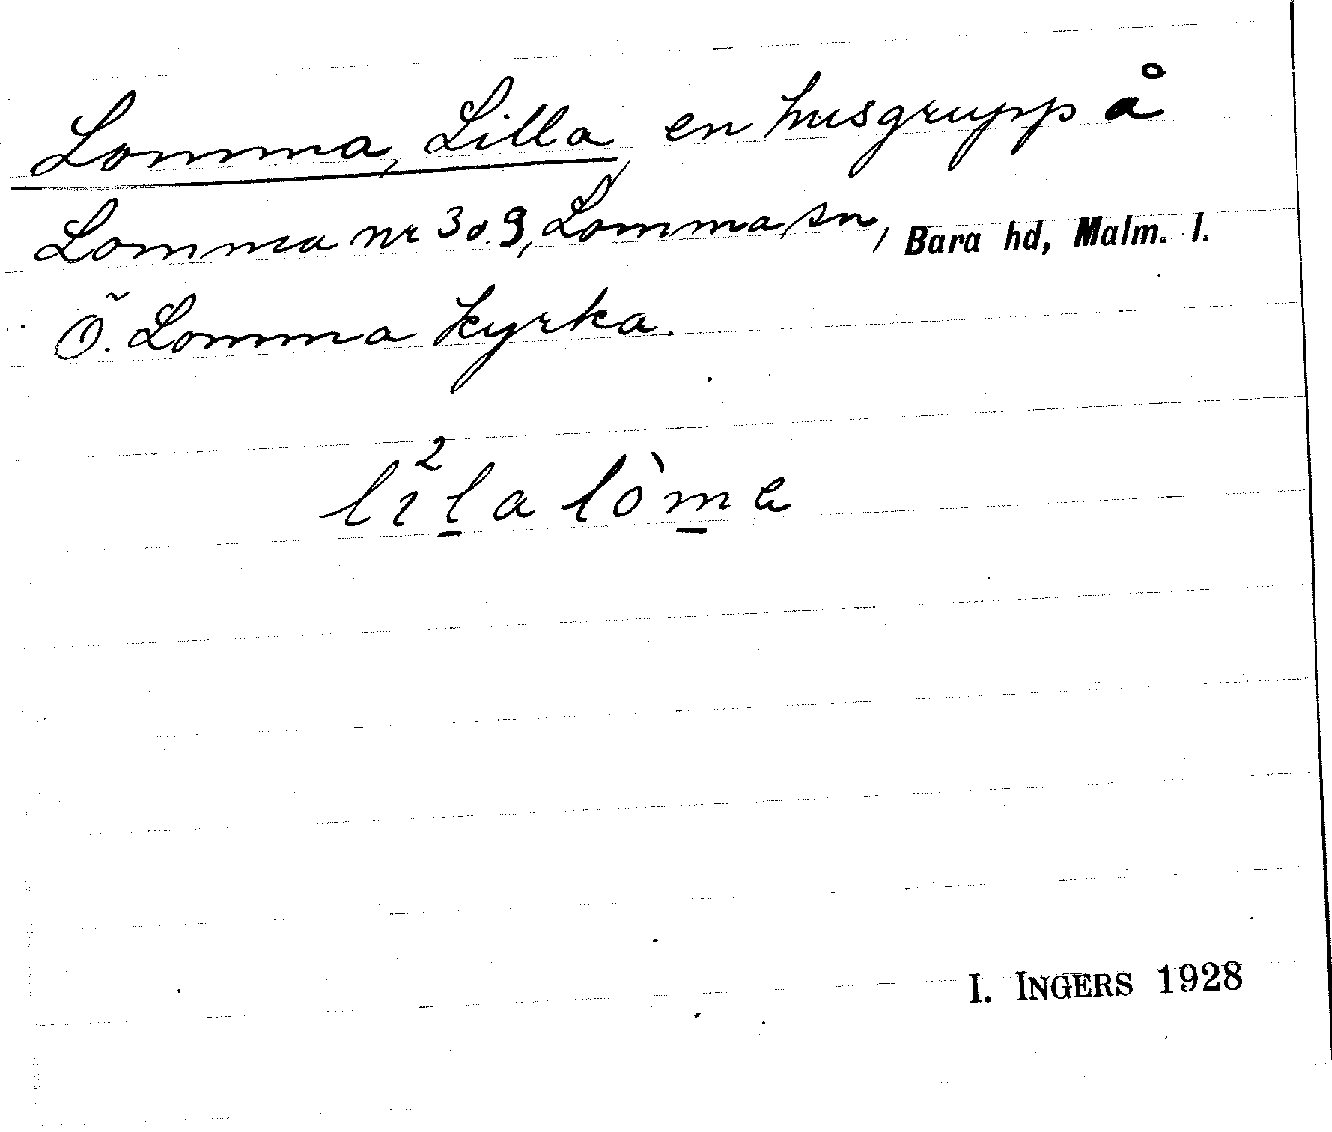 Lomma, Lilla, en husgrupp å
Lomma nr 3 o. 9, Lomma sn, Bara hd, Malm. l.
Ö. Lomma kyrka.
li²l̲a lòm̲a
I. INGERS 1928